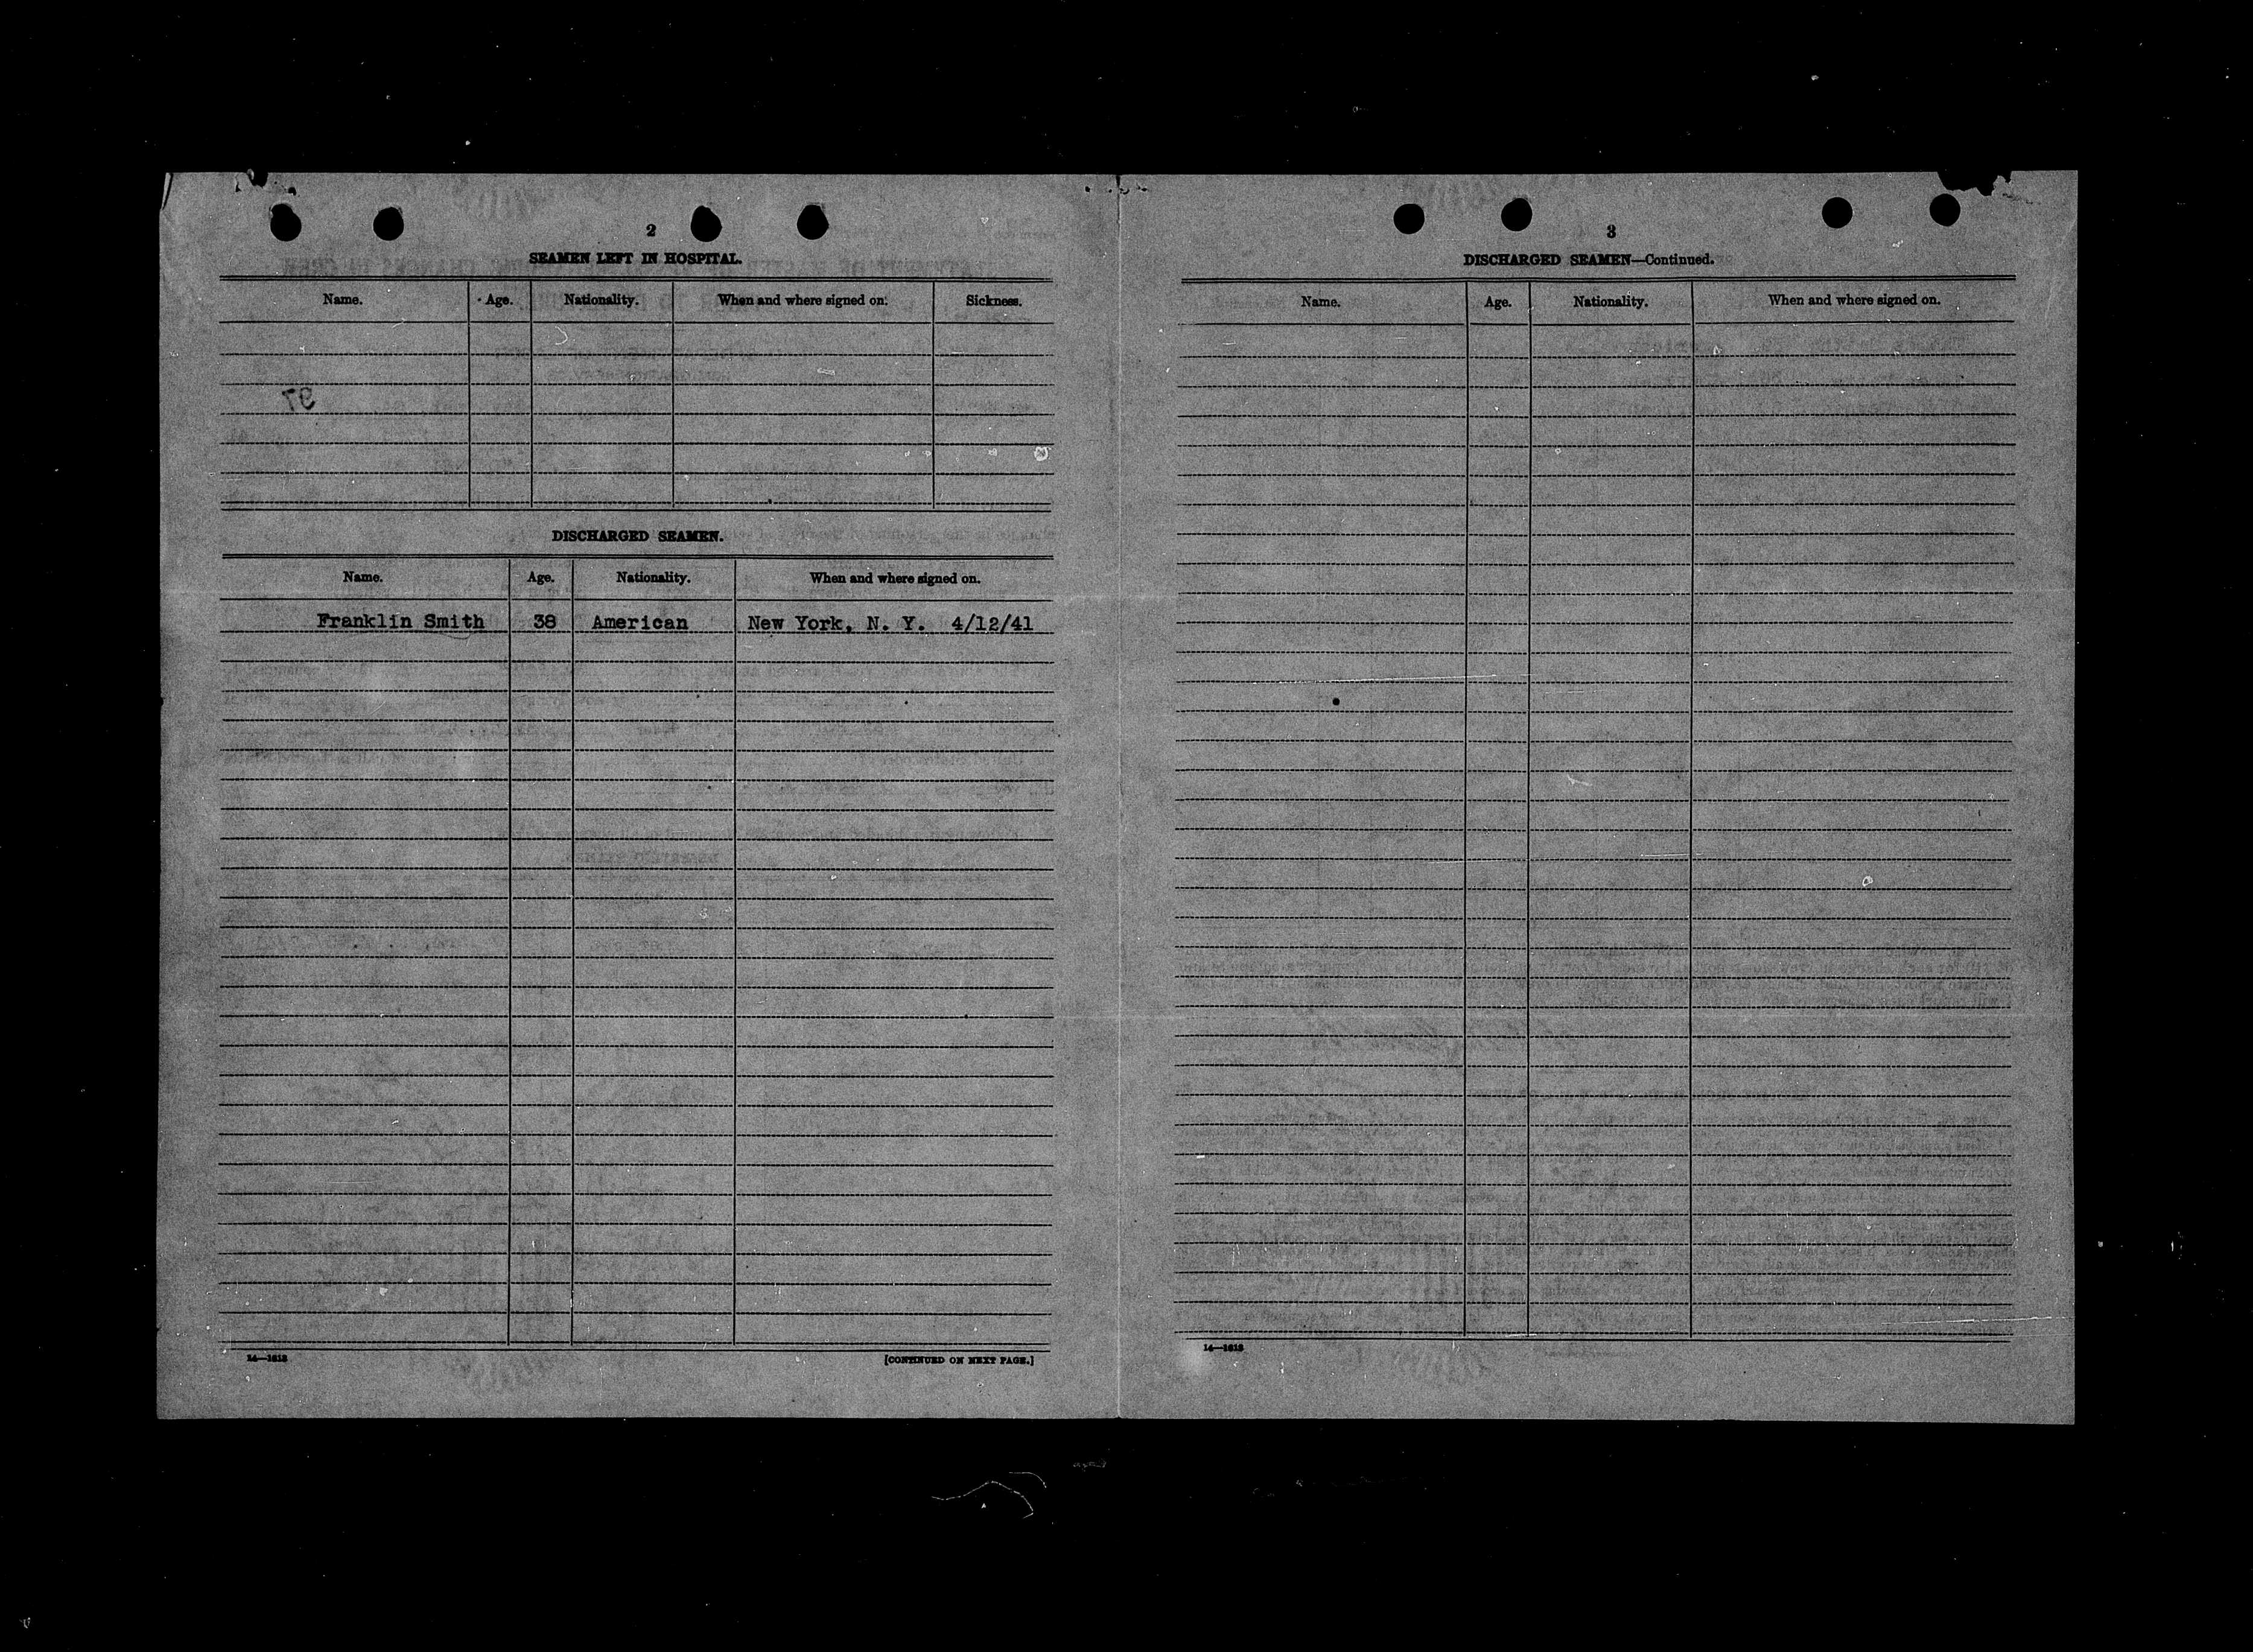 2
SEAMEN LEFT IN HOSPITAL.
Name. Age. Nationality. When and where signed on. Sickness.
97
DISCHARGED SEAMEN.
Name. Age. Nationality. When and where signed on.
Franklin Smith 38 American New York, N. Y. 4/12/41
14—1613
[CONTINUED ON NEXT PAGE.]
3
DISCHARGED SEAMEN—Continued.
Name. Age. Nationality. When and where signed on.
14—1613